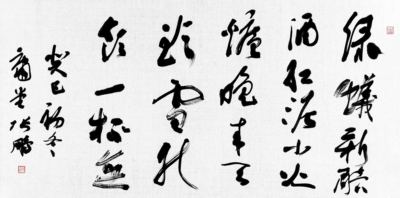 綠蟻新醅
酒紅泥小火
爐晚来天
欲雪能
飲一杯無
癸巳初冬
張鵬